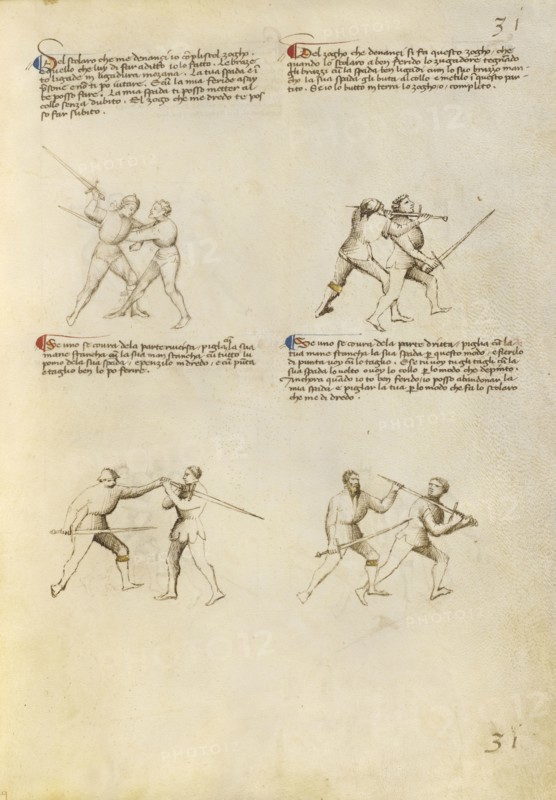 31
Del scolaro che me denanci io complisco l zogho.
quello che luy di far a ditto io lo fatto. Le braze
to ligade in ligadura mezana. La tua spada e in
presone e no ti po aiutare. E cum la mia feride assay
te posso fare. La mia spada ti posso metter al
collo senza dubito. El zogo che me dredo te pos
so far subito.
Del zogho che denanci si fa questo zogho, che
quando lo scolaro a ben ferido lo zugadore tegnando
gli brazzi cum la spada ben ligadi cum lo suo brazo man
cho la sua spada gli buta al collo e metilo i questo par
tito. Se io lo butto in terra lo zogho o complito.
Se uno se covra dela parte riversa, piglia la sua
mane stancha cum la tua man stancha cum tutto lu
pomo dela sua spada, e penzilo in dredo, e cum punta
e taglio ben lo po ferire.
Se uno se covra dela parte dritta, piglia cum la
tua mane stancha la sua spada per questo modo, e fierilo
di punta voy cum lo taglio. E se tu voy tu gli tagli cum la
sua spada lo volto o voy lo collo per lo modo che depinto.
Anchora quando io to ben ferido, io posso abandonar la
mia spada e pigliar la tua per lo modo che fa lo scolaro
che me di dredo.
31
PHOTO12